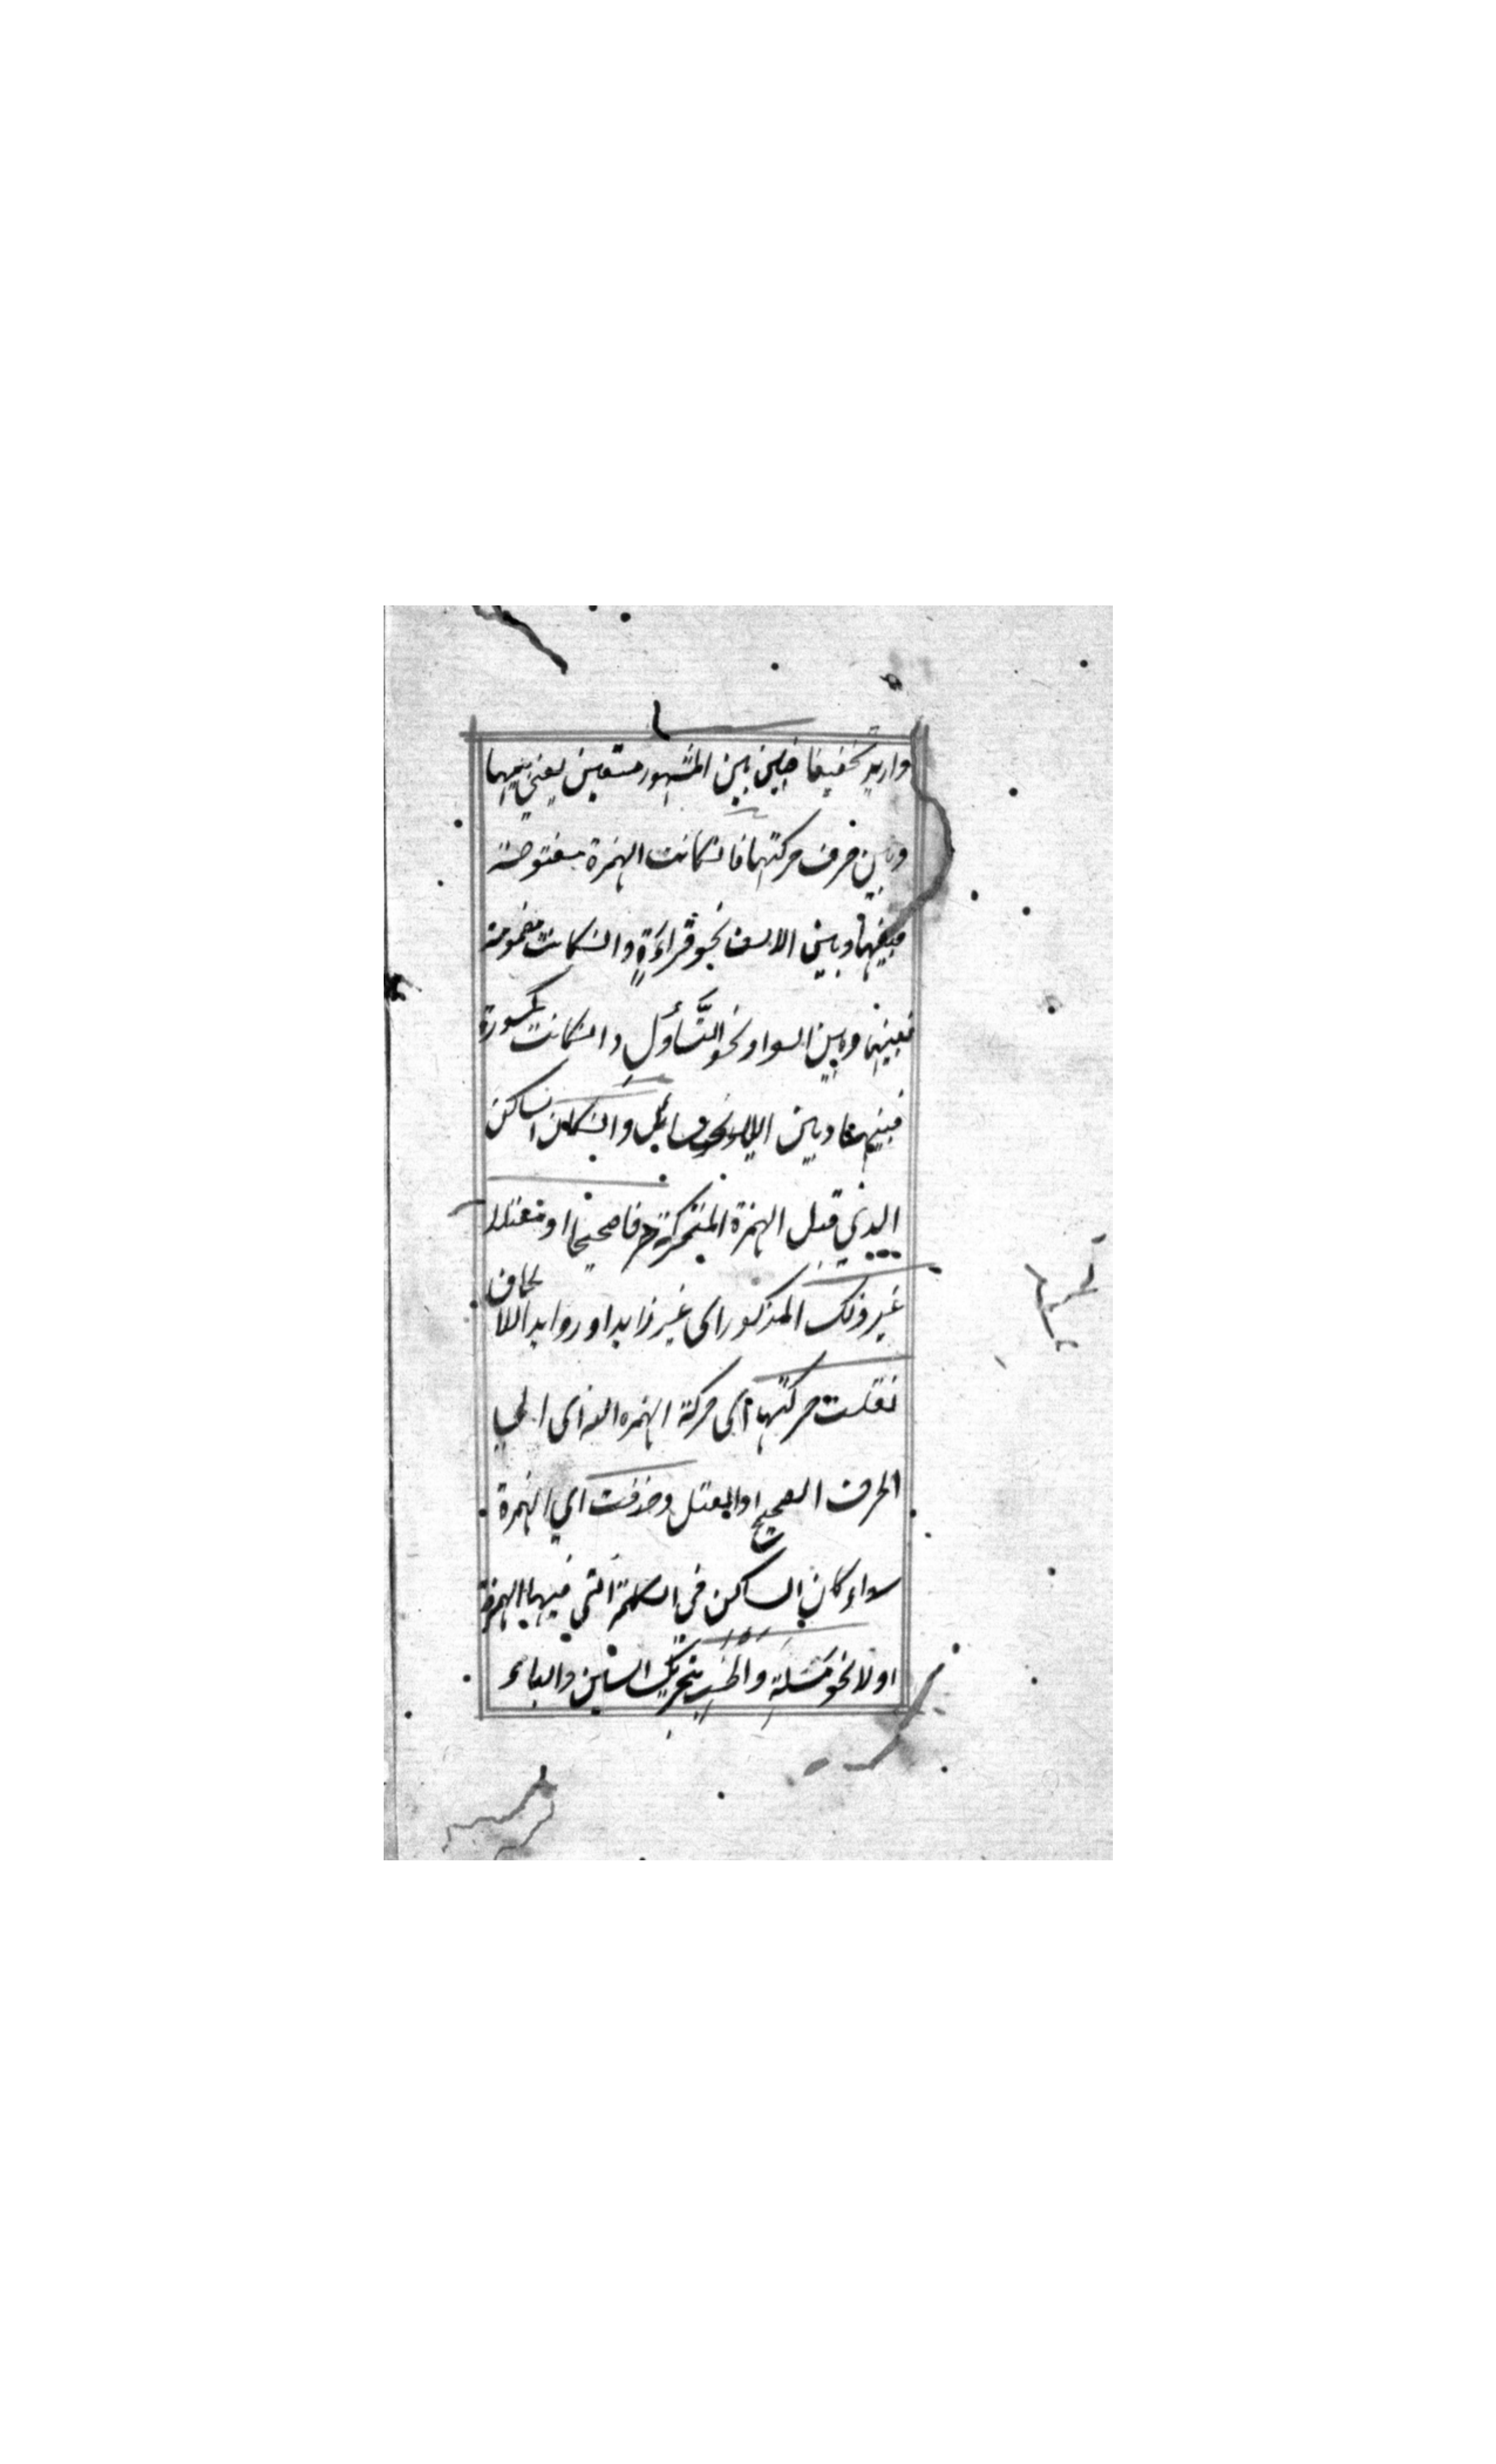 واريد تخفيفها فبين بين المشهور متعين يعني بينها
وبين حرف حركتها فانكانت الهمزة مفتوحة
فبينها وبين الالف نحو قراءة وانكانت مضمومة
فبينها وبين الواو نحو التساؤل وانكانت مكسورة
فبينها وبين الياء نحو قائل وانكان الساكن
الذي قبل الهمزة المتحركة حرفا صحيحا او معتلا
غير ذلك المذكور اى غير زايد او زوايد اللالحاق
نقلت حركتها اى حركة الهمزه اى
الحرف الصحيح او المعتل وحذفت اي الهمزة
سواء كان الساكن في الكلمة التى فيها الهمزة
اولا نحو مسلة والخب بتحريك السين والباء